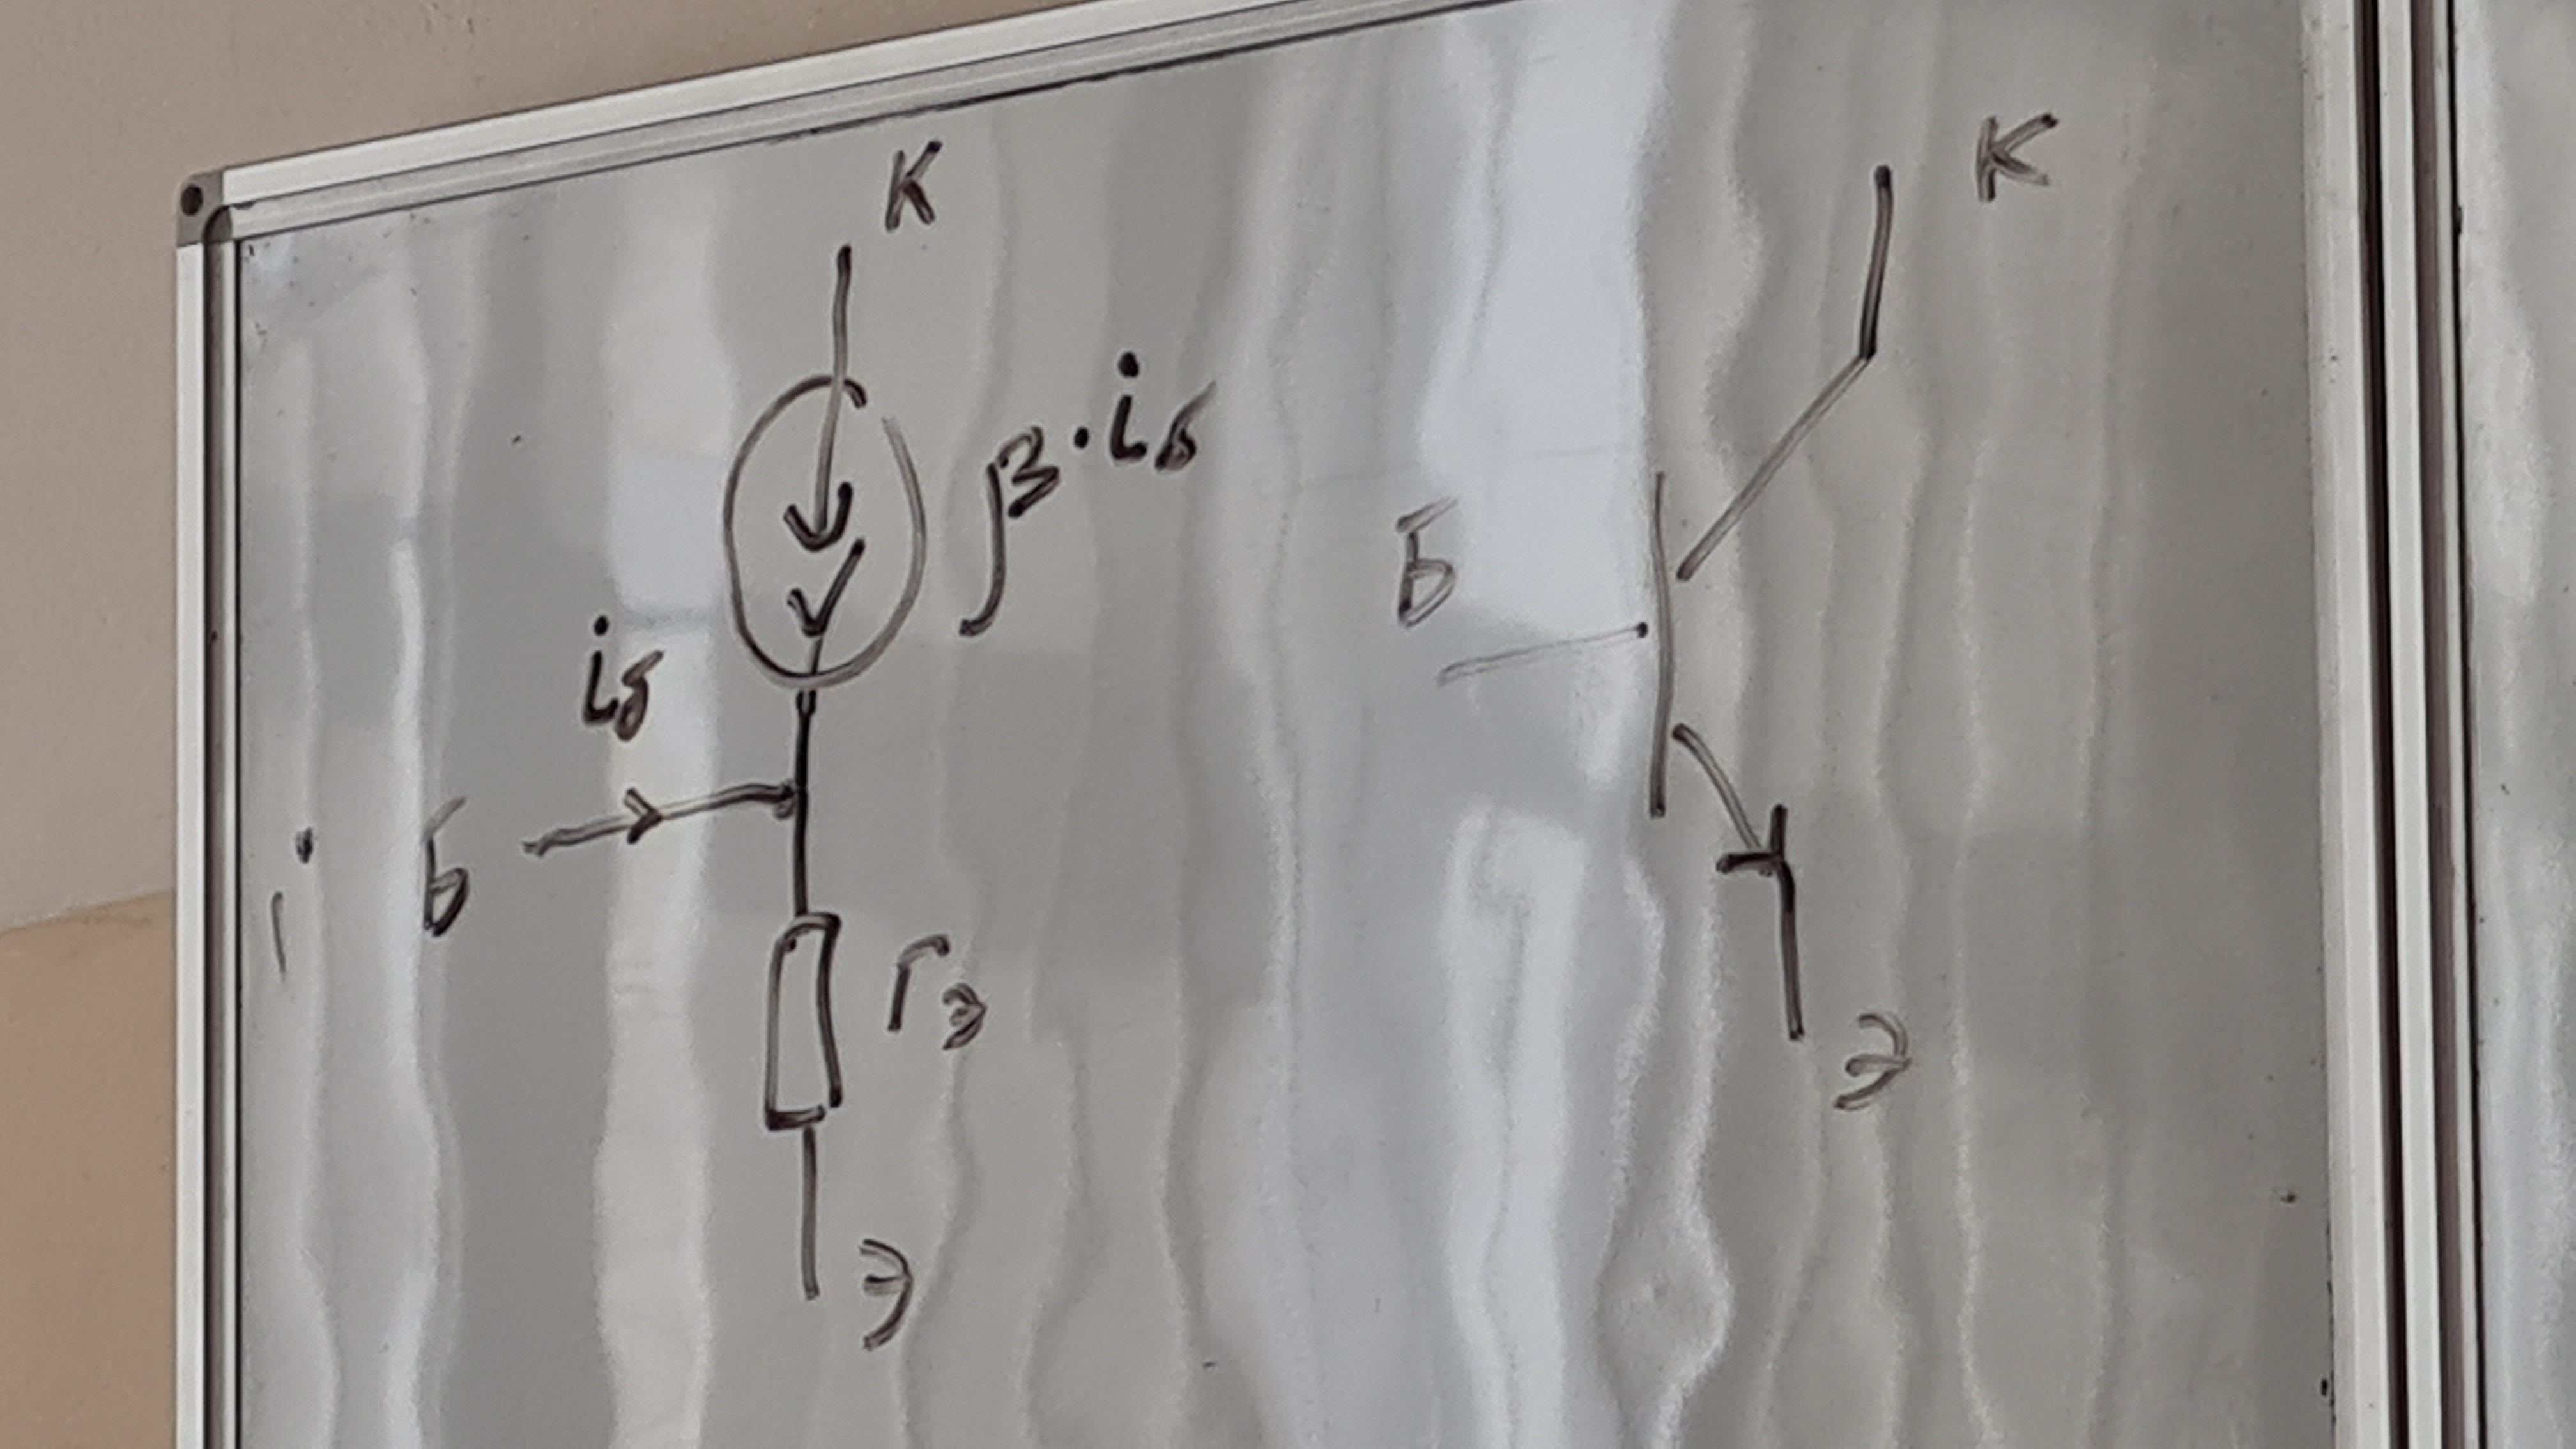 К
β·iб
iб
Б
rэ
Э
К
Б
Э